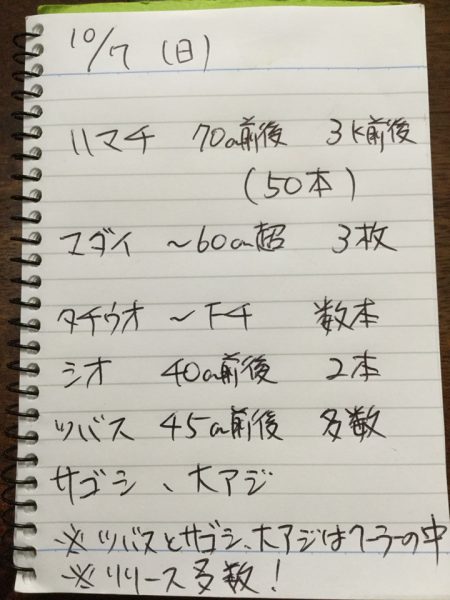 10/7 (日)
ハマチ 70cm前後 3k前後
(50本)
マゴイ ～60cm超 3枚
タチウオ ～F4 数本
シオ 40cm前後 2本
ツバス 45cm前後 多数
サゴシ、大アジ
※ツバスとサゴシ、大アジはクーラーの中
※リリース多数!